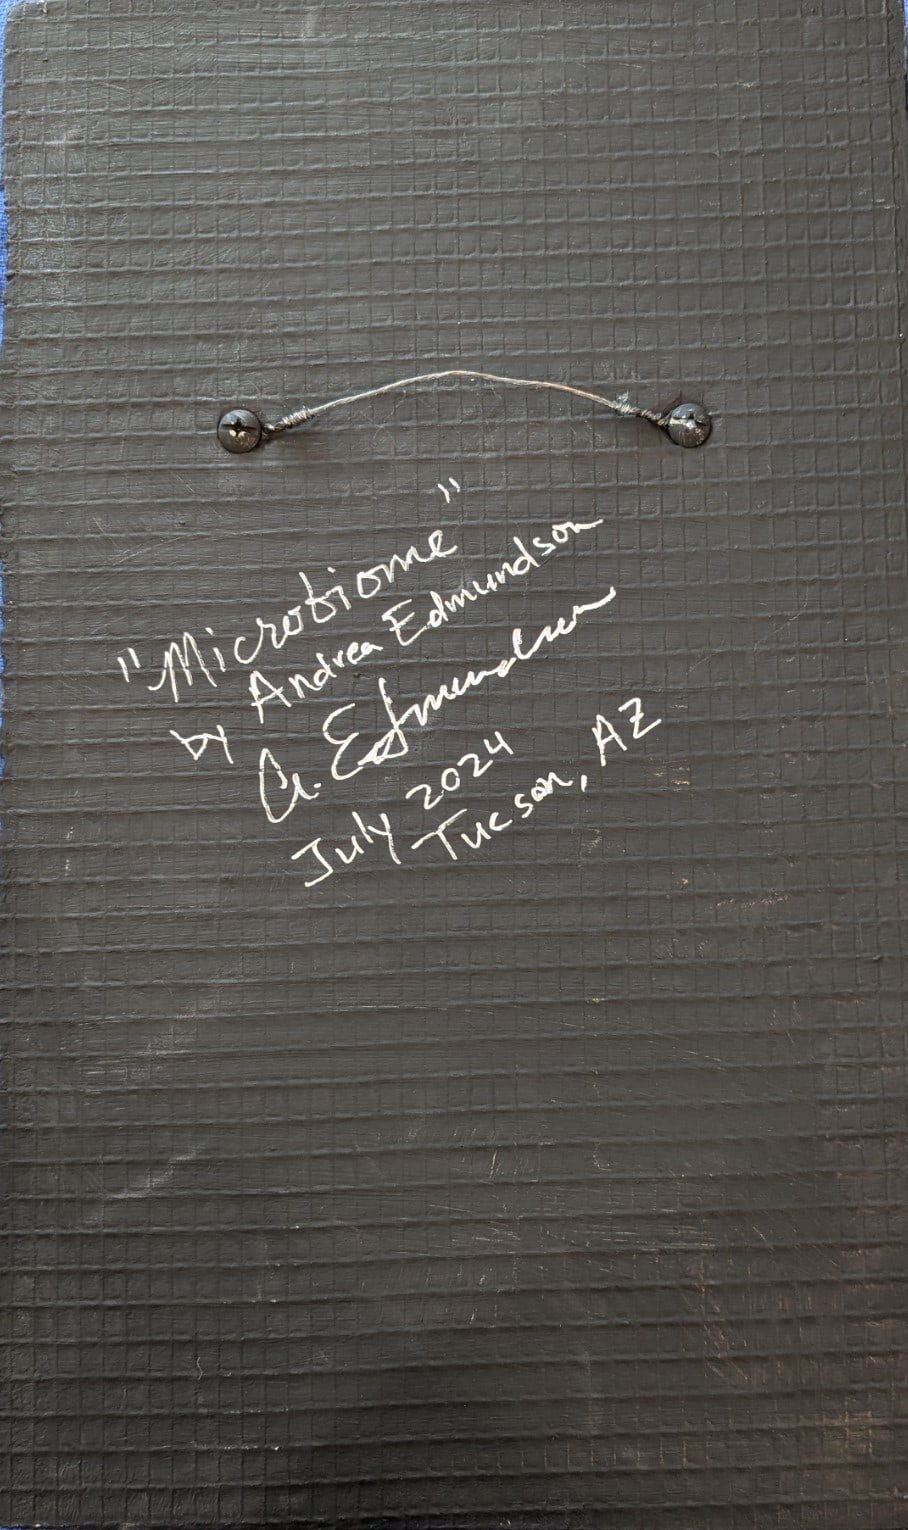 "Microbiome"
by Andrea Edmundson
A. Edmundson
July 2024
Tucson, AZ